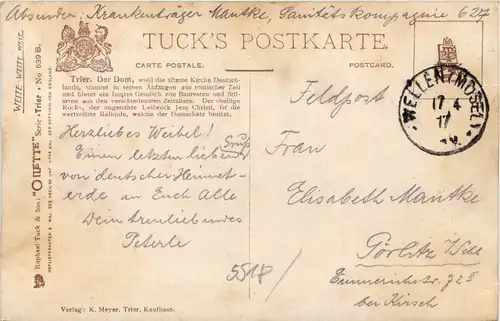 Absender: Krankenträger Mantke, Sanitätskompagnie 627
TUCK'S POSTKARTE.
CARTE POSTALE. POSTCARD.
Trier. Der Dom, wohl die älteste Kirche Deutsch-
lands, stammt in seinen Anfängen aus römischer Zeit
und bietet ein langes Gemisch von Bauresten und Stil-
arten aus den verschiedensten Zeitaltern. Der »heilige
Rock«, der ungenähte Leibrock Jesu Christi, ist die
wertvollste Reliquie, welche der Domschatz besitzt.
Herzliebes Weibel!
Gruß
Einen letzten lieben
von deutscher Heimat-
erde an Euch Alle
Dein treuliebendes
Peterle
5518/
Feldpost
WELLEN (MOSEL)
17 4
17
Frau
Elisabeth Mantke
Görlitz
Emmerichstr. 72
bei Kirsch
Verlag: K. Meyer, Trier, Kaufhaus.
Raphael Tuck & Sons' "OILETTE" Serie »Trier« No 639 B.
HOFLIEFERANTEN S. MAJ. DES KÖNIGS UND I. MAJ. DER KÖNIGIN VON ENGLAND.
WEITE-WEITE WELT